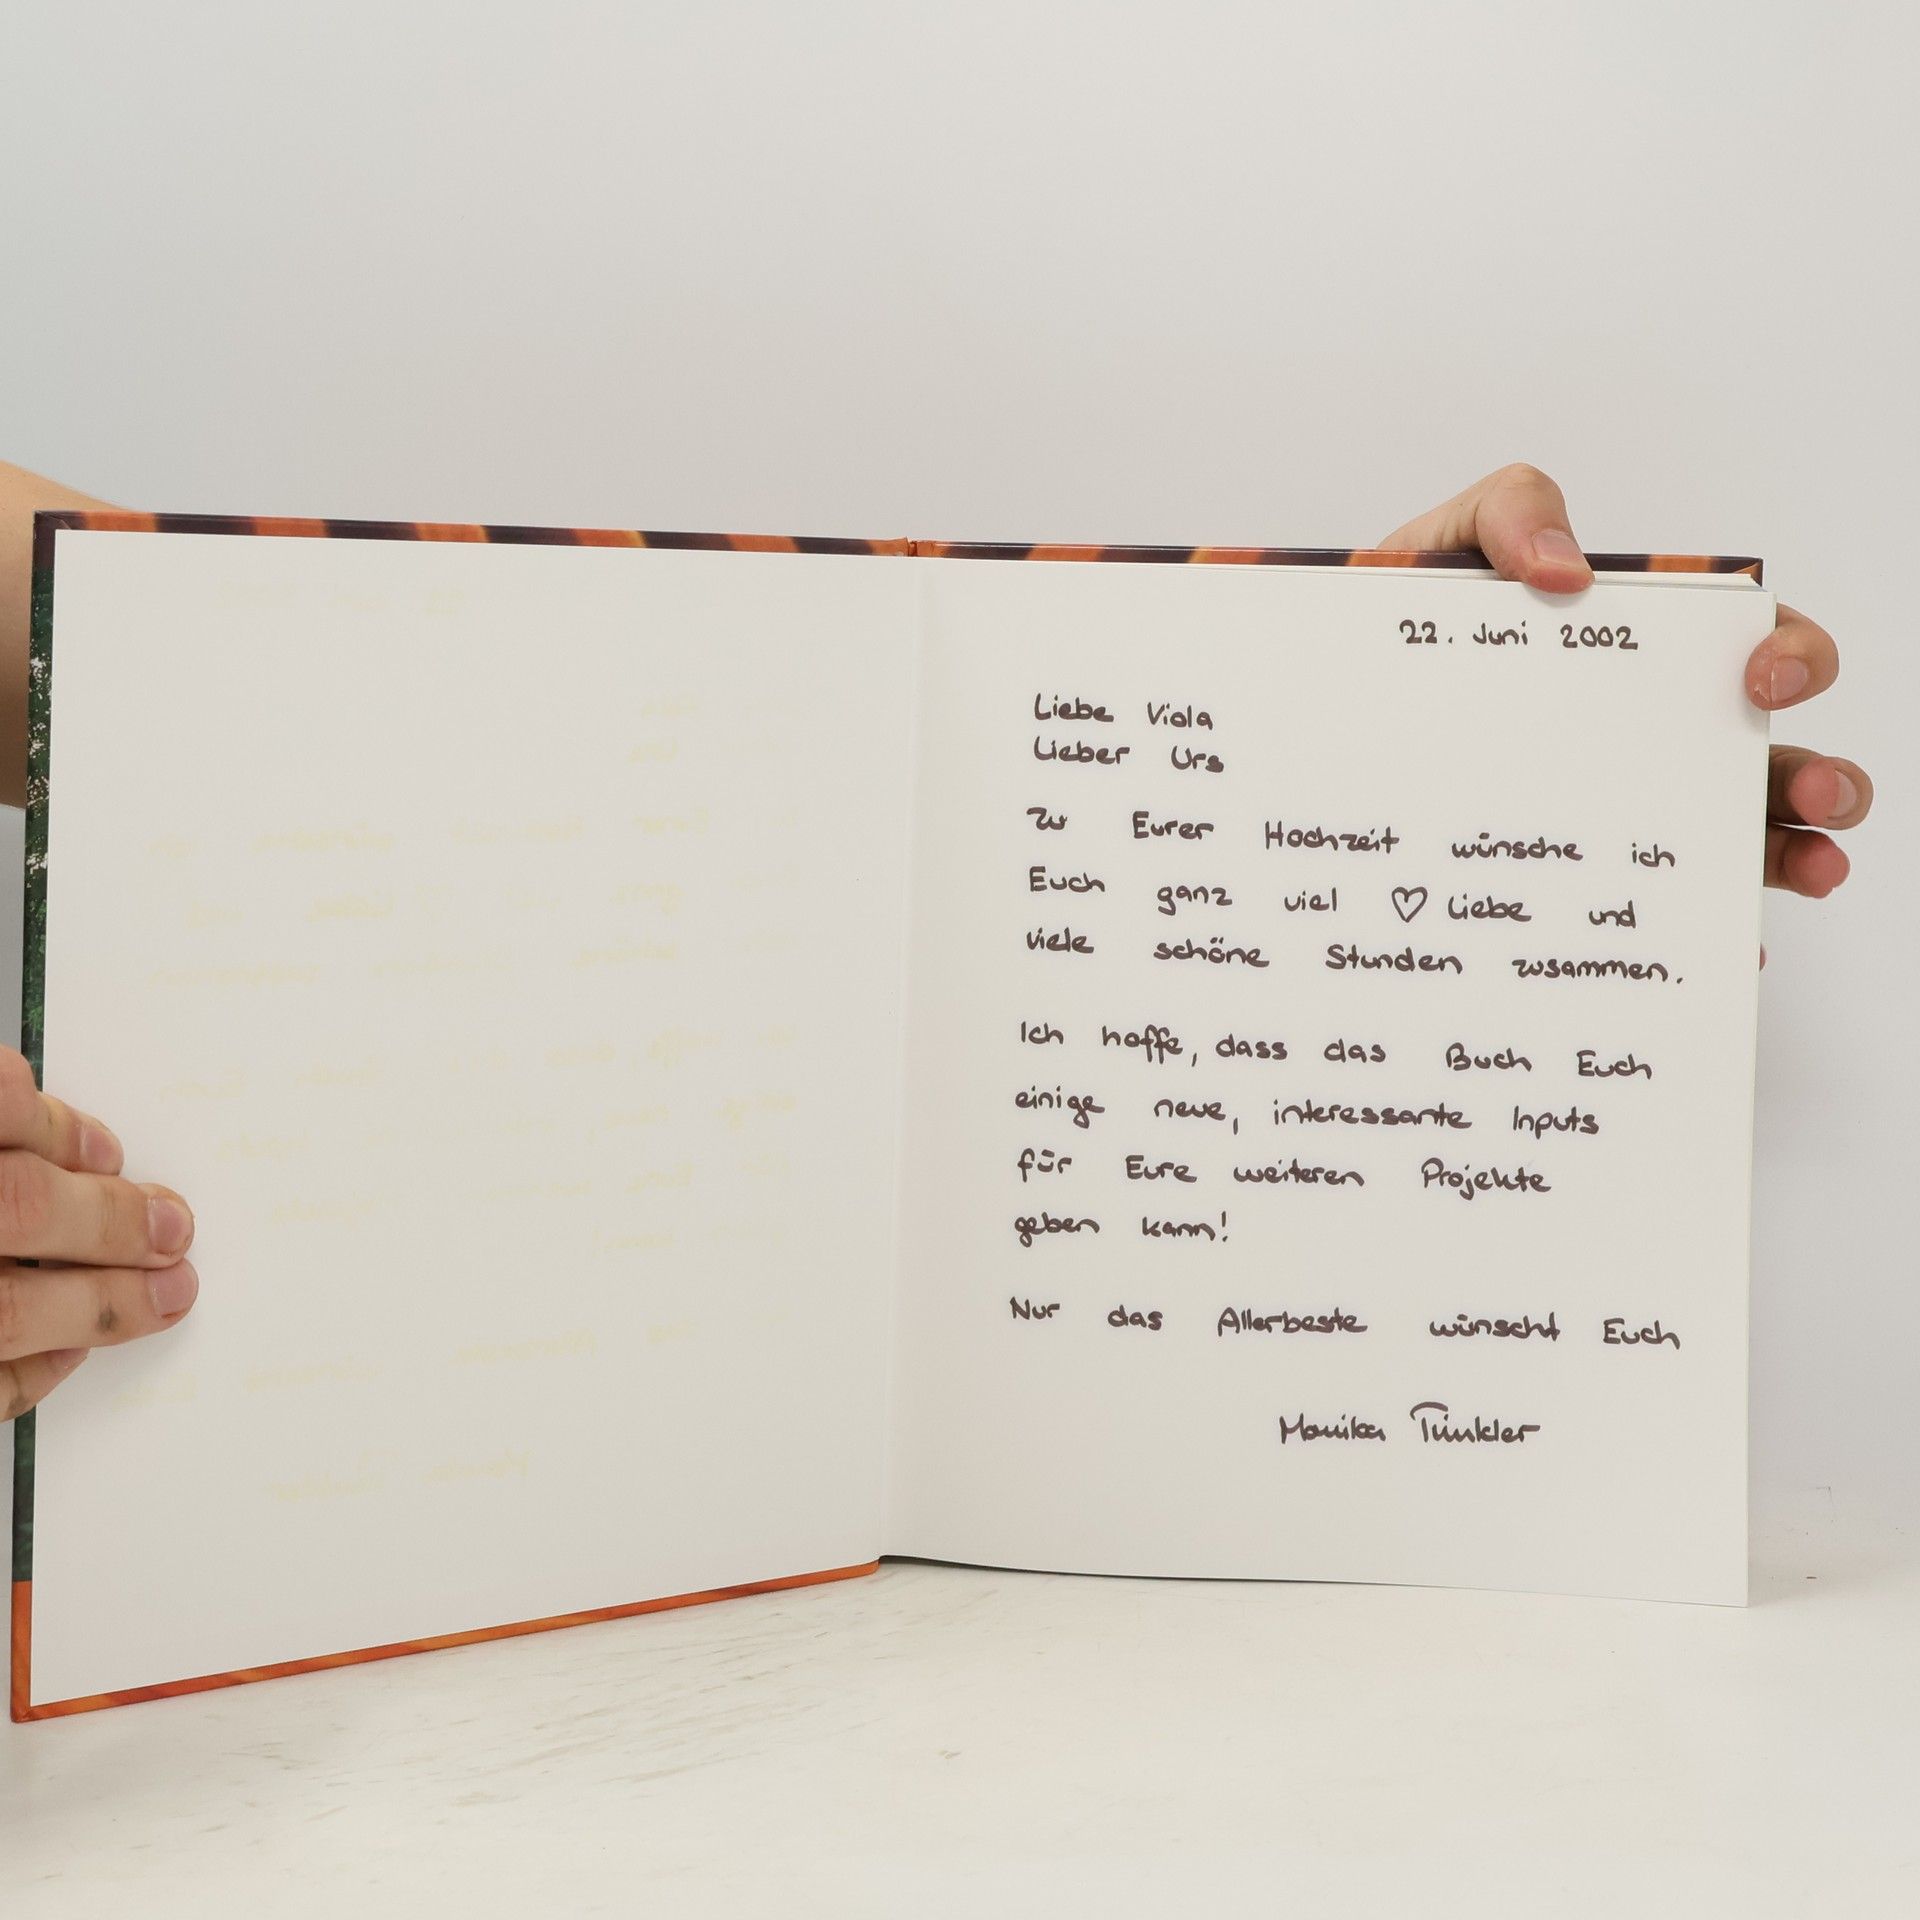 22. Juni 2002
Liebe Viola
Lieber Urs
Zu Eurer Hochzeit wünsche ich
Euch ganz viel ♡ Liebe und
viele schöne Stunden zusammen.
Ich hoffe, dass das Buch Euch
einige neue, interessante Inputs
für Eure weiteren Projekte
geben kann!
Nur das Allerbeste wünscht Euch
Monika